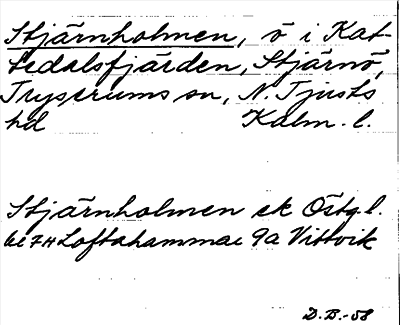 Stjärnholmen, ö i Kat-
tedalsfjärden, Stjärnö,
Tryserums sn, N. Tjusts
hd Kalm. l.
Stjärnholmen ek Östg. l.
Loftahammar 9a Vittvik
D.B.-58